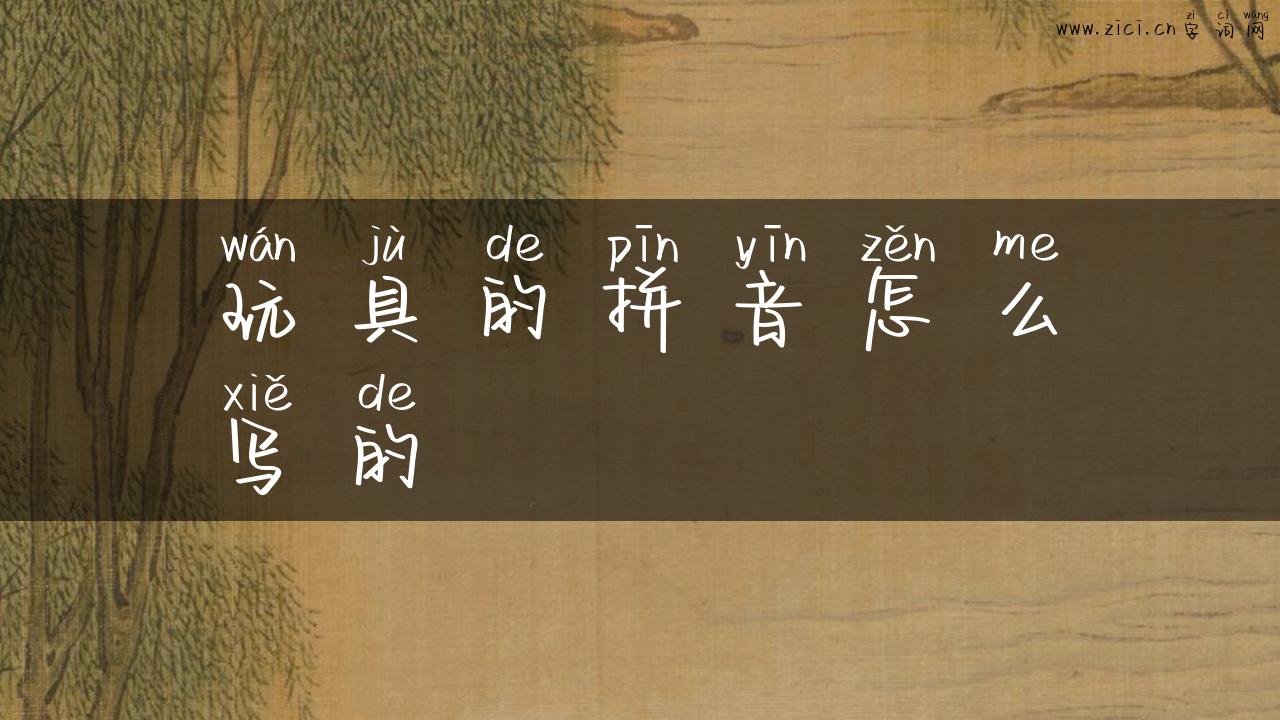 zì cí wǎng
www.zici.cn 字词网
wán jù de pīn yīn zěn me
玩具的拼音怎么
xiě de
写的